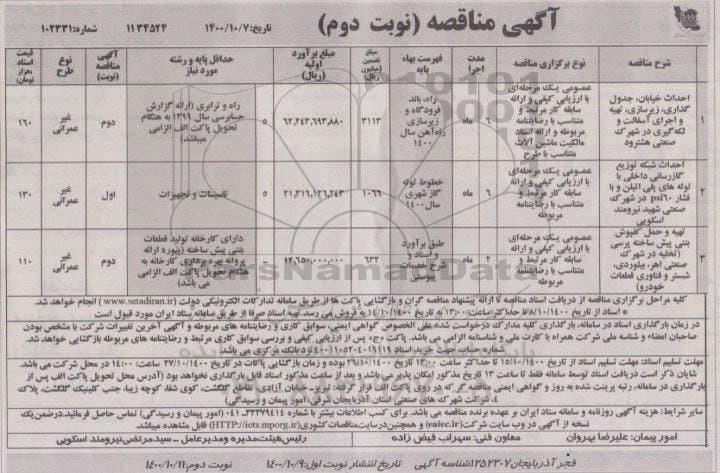 آگهی مناقصه (نوبت دوم)
تاریخ: ۱۴۰۰/۱۰/۷
۱۱۳۴۵۲۴
شماره: ۱۰۲۳۳۱
شرح مناقصه
نوع برگزاری مناقصه
مدت اجرا
فهرست بهاء پایه
مبلغ تضمین (میلیون ریال)
مبلغ برآورد اولیه (ریال)
حداقل پایه و رشته مورد نیاز
آگهی مناقصه (نوبت)
نوع طرح
قیمت اسناد (هزار تومان)
۱
احداث خیابان، جدول گذاری، زیرسازی، تهیه و اجرای آسفالت و لکه گیری در شهرک صنعتی هشترود
عمومی یک مرحله‌ای با ارزیابی کیفی و ارائه سابقه کار مرتبط و متناسب با رضایتنامه مربوطه و ارائه اسناد مالکیت ماشین آلات متناسب با طرح
۶ ماه
راه، باند فرودگاه و زیرسازی راه آهن سال ۱۴۰۰
۳۱۱۳
۶۲,۲۴۳,۶۹۳,۸۸۰
۵
راه و ترابری (ارائه گزارش حسابرسی سال ۱۳۹۹ به هنگام تحویل پاکت الف الزامی میباشد)
دوم
غیر عمرانی
۱۶۰
۲
احداث شبکه توزیع گازرسانی داخلی با لوله های پلی اتیلن و با فشار psi۶۰ در شهرک صنعتی شهید نیرومند اسکویی
عمومی یک مرحله‌ای با ارزیابی کیفی و ارائه سابقه کار مرتبط و متناسب با رضایتنامه مربوطه
۶ ماه
خطوط لوله گاز شهری سال ۱۴۰۰
۱۰۶۶
۲۱,۳۱۶,۱۲۶,۲۴۳
۵
تاسیسات و تجهیزات
اول
غیر عمرانی
۱۳۰
۳
تهیه و حمل کفپوش بتنی پیش ساخته پرسی (تخلیه در شهرک صنعتی اهر، بیلوردی، شبستر و فناوری قطعات خودرو)
عمومی یک مرحله‌ای با ارزیابی کیفی و ارائه سابقه کار مرتبط و متناسب با رضایتنامه مربوطه
۲ ماه
طبق برآورد و اسناد و شرح خدمات پیوستی
۶۳۲
۱۲,۶۵۰,۰۰۰,۰۰۰
دارای کارخانه تولید قطعات بتنی پیش ساخته ارائه پروانه بهره برداری کارخانه به هنگام تحویل پاکت الف الزامی می باشد)
دوم
غیر عمرانی
۱۱۰
کلیه مراحل برگزاری مناقصه از دریافت اسناد مناقصه تا ارائه پیشنهاد مناقصه گران و بازگشایی پاکت ها از طریق سامانه تدارکات الکترونیکی دولت (www.setadiran.ir) انجام خواهد شد.
* اسناد از تاریخ ۱۴۰۰/۱۰/۸ تا حداکثر ساعت ۱۳:۰۰ به تاریخ ۱۴۰۰/۱۰/۱۴ به فروش می رسد. تهیه اسناد صرفا از طریق سامانه ستاد ایران مورد قبول است
در زمان بارگذاری اسناد در سامانه، بارگذاری کلیه مدارک درخواست شده علی الخصوص گواهی ایمنی، سوابق کاری و رضایتنامه های مربوطه و آگهی آخرین تغییرات شرکت با مشخص بودن
صاحبان امضاء و شناسه ملی شرکت همراه با کارت ملی و شناسنامه الزامی می باشد. پاکت «ج» پس از ارزیابی کیفی و بررسی سوابق کاری مرتبط و رضایتنامه های مربوطه بازگشایی خواهد شد.
شماره حساب جهت خرید اسناد نزد بانک مرکزی می باشد
مهلت تسلیم اسناد: مهلت تسلیم اسناد از تاریخ ۱۴۰۰/۱۰/۱۵ تا حداکثر ساعت ۱۳:۰۰ تاریخ ۱۴۰۰/۱۰/۲۶ بوده و زمان بازگشایی پاکات در تاریخ ۱۴۰۰/۱۰/۲۷ ساعت: ۱۴:۰۰ در محل شرکت می باشد.
شایان ذکر است دریافت اسناد توسط سامانه فقط تا ساعت ۱۳ تاریخ مذکور امکان پذیر می باشد و بعد از ساعت مذکور اسناد قابل بارگذاری نخواهد بود (آدرس محل تحویل پاکت الف پس از
بارگذاری در سامانه، رتبه پرینت شده به روز و گواهی ایمنی مناقصه گر که در روی پاکت الف قرار گرفته: تبریز، خیابان آزادی، تقاطع گلگشت، کوی شفا، کوچه زیبا، جنب کلینیک گلگشت، پلاک
۴، شرکت شهرک های صنعتی استان آذربایجان شرقی، امور پیمان و رسیدگی)
سایر شرایط: هزینه آگهی روزنامه و سامانه ستاد ایران بر عهده برنده مناقصه می باشد. برای کسب اطلاعات بیشتر با شماره ۳۳۳۷۹۴۱۴-۰۴۱ (امور پیمان و رسیدگی) تماس حاصل فرمائید. درضمن یک
نسخه از آگهی در وب سایت شرکت (eaiec.ir) و همچنین در سایت مناقصات کشوری (HTTP://iets.mporg.ir) قابل مشاهده میباشد.
امور پیمان: علیرضا بهروان
معاون فنی: سهراب فیض زاده
رئیس هیئت مدیره و مدیرعامل - سید مرتضی نیرومند اسکویی
فجر آذربایجان ۱۲۵۲۳۰۷ شناسه آگهی
تاریخ انتشار نوبت اول: ۱۴۰۰/۱۰/۹
نوبت دوم: ۱۴۰۰/۱۰/۱۱